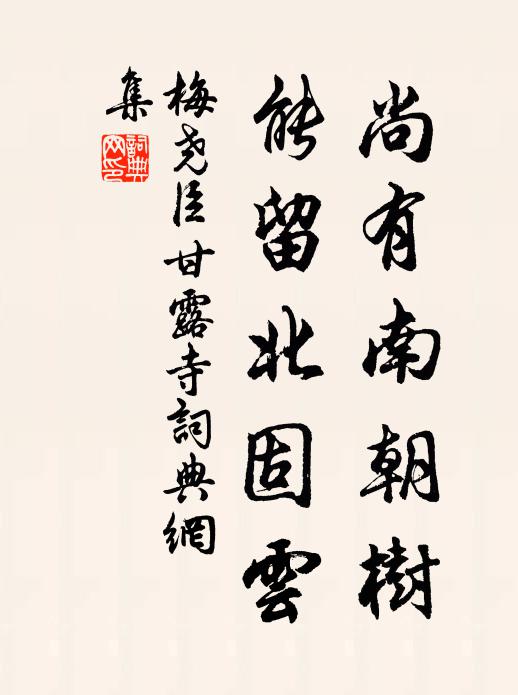 尚有南朝樹
能留北固雲
梅堯臣甘露寺詞典網
集
詞典
网印